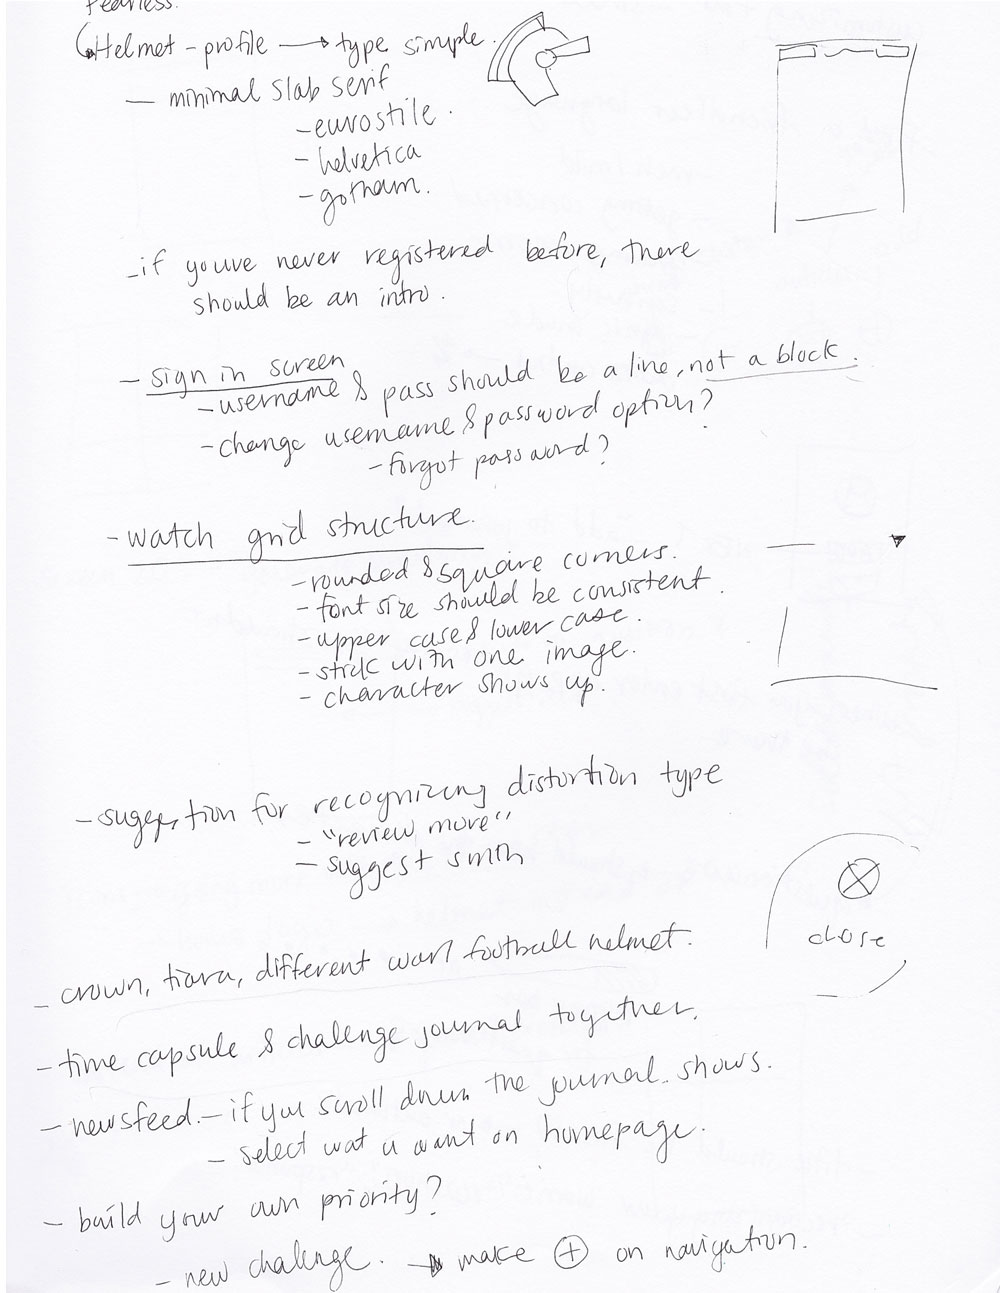 Fearless.
Helmet - profile → type simple.
- minimal slab serif
- eurostile.
- helvetica
- gotham.
- if youve never registered before, there
should be an intro.
- sign in screen
- username & pass should be a line, not a block.
- change username & password option?
- forgot password?
- watch grid structure.
- rounded & square corners.
- font size should be consistent.
- upper case & lower case.
- stick with one image.
- character shows up.
- suggestion for recognizing distortion type
- "review more"
- suggest smth
close
- crown, tiara, different football helmet.
- time capsule & challenge journal together.
- newsfeed. - if you scroll down the journal shows.
- select wat u want on homepage.
- build your own priority?
- new challenge. → make ⊕ on navigation.